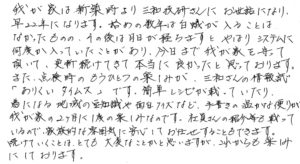 我が家は新築時より三和さんにお世話になり、
早22年になります。始めの数年は白蟻が入ることは
なかったものの、その後は月日が経ちますと、やはりシステムに
何度か入っていたことがあり、今日まで我が家を守って
頂いて、更新続けてきて本当に良かったと思っております。
また、点検時のもう1つの楽しみが、三和さんの情報誌
「ありくいタイムス」です。簡単レシピが載っていたり、
為になる地域の豆知識や面白クイズなど、手書きの温かな便りが
我が家の2ヶ月に1度の楽しみなのです。社員さんの紹介等も載って
いるので、家族的な雰囲気に安心してお任せすることもできます。
続けていくことは、とても大変なことかと思いますが、これからも楽しみ
にしております。